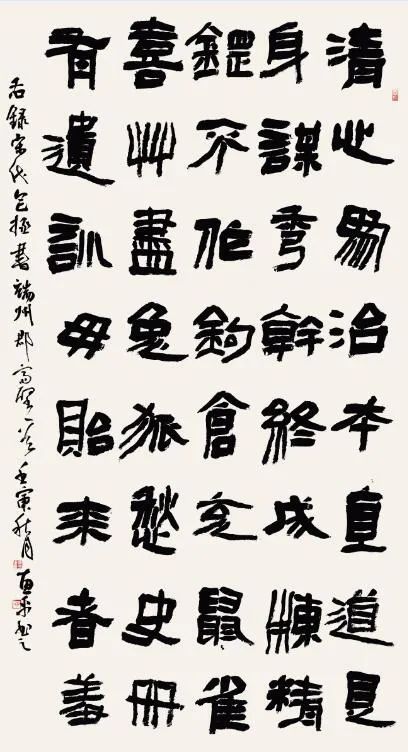 清心為治本直道是
身謀秀幹終成棟精
鋼不作鉤倉充鼠雀
喜艸盡兔狐愁史冊
有遺訓毋貽來者羞
右錄宋代包拯書端州郡齋壁一首壬寅秋月